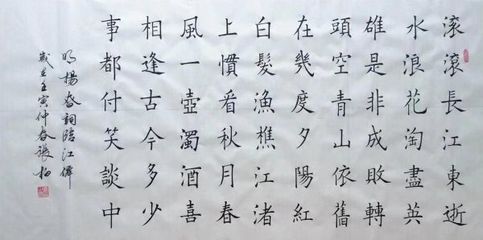 滾滾長江東逝
水浪花淘盡英
雄是非成敗轉
頭空青山依舊
在幾度夕陽紅
白髮漁樵江渚
上慣看秋月春
風一壺濁酒喜
相逢古今多少
事都付笑談中
明楊昚詞臨江僊
歲在壬寅仲春張